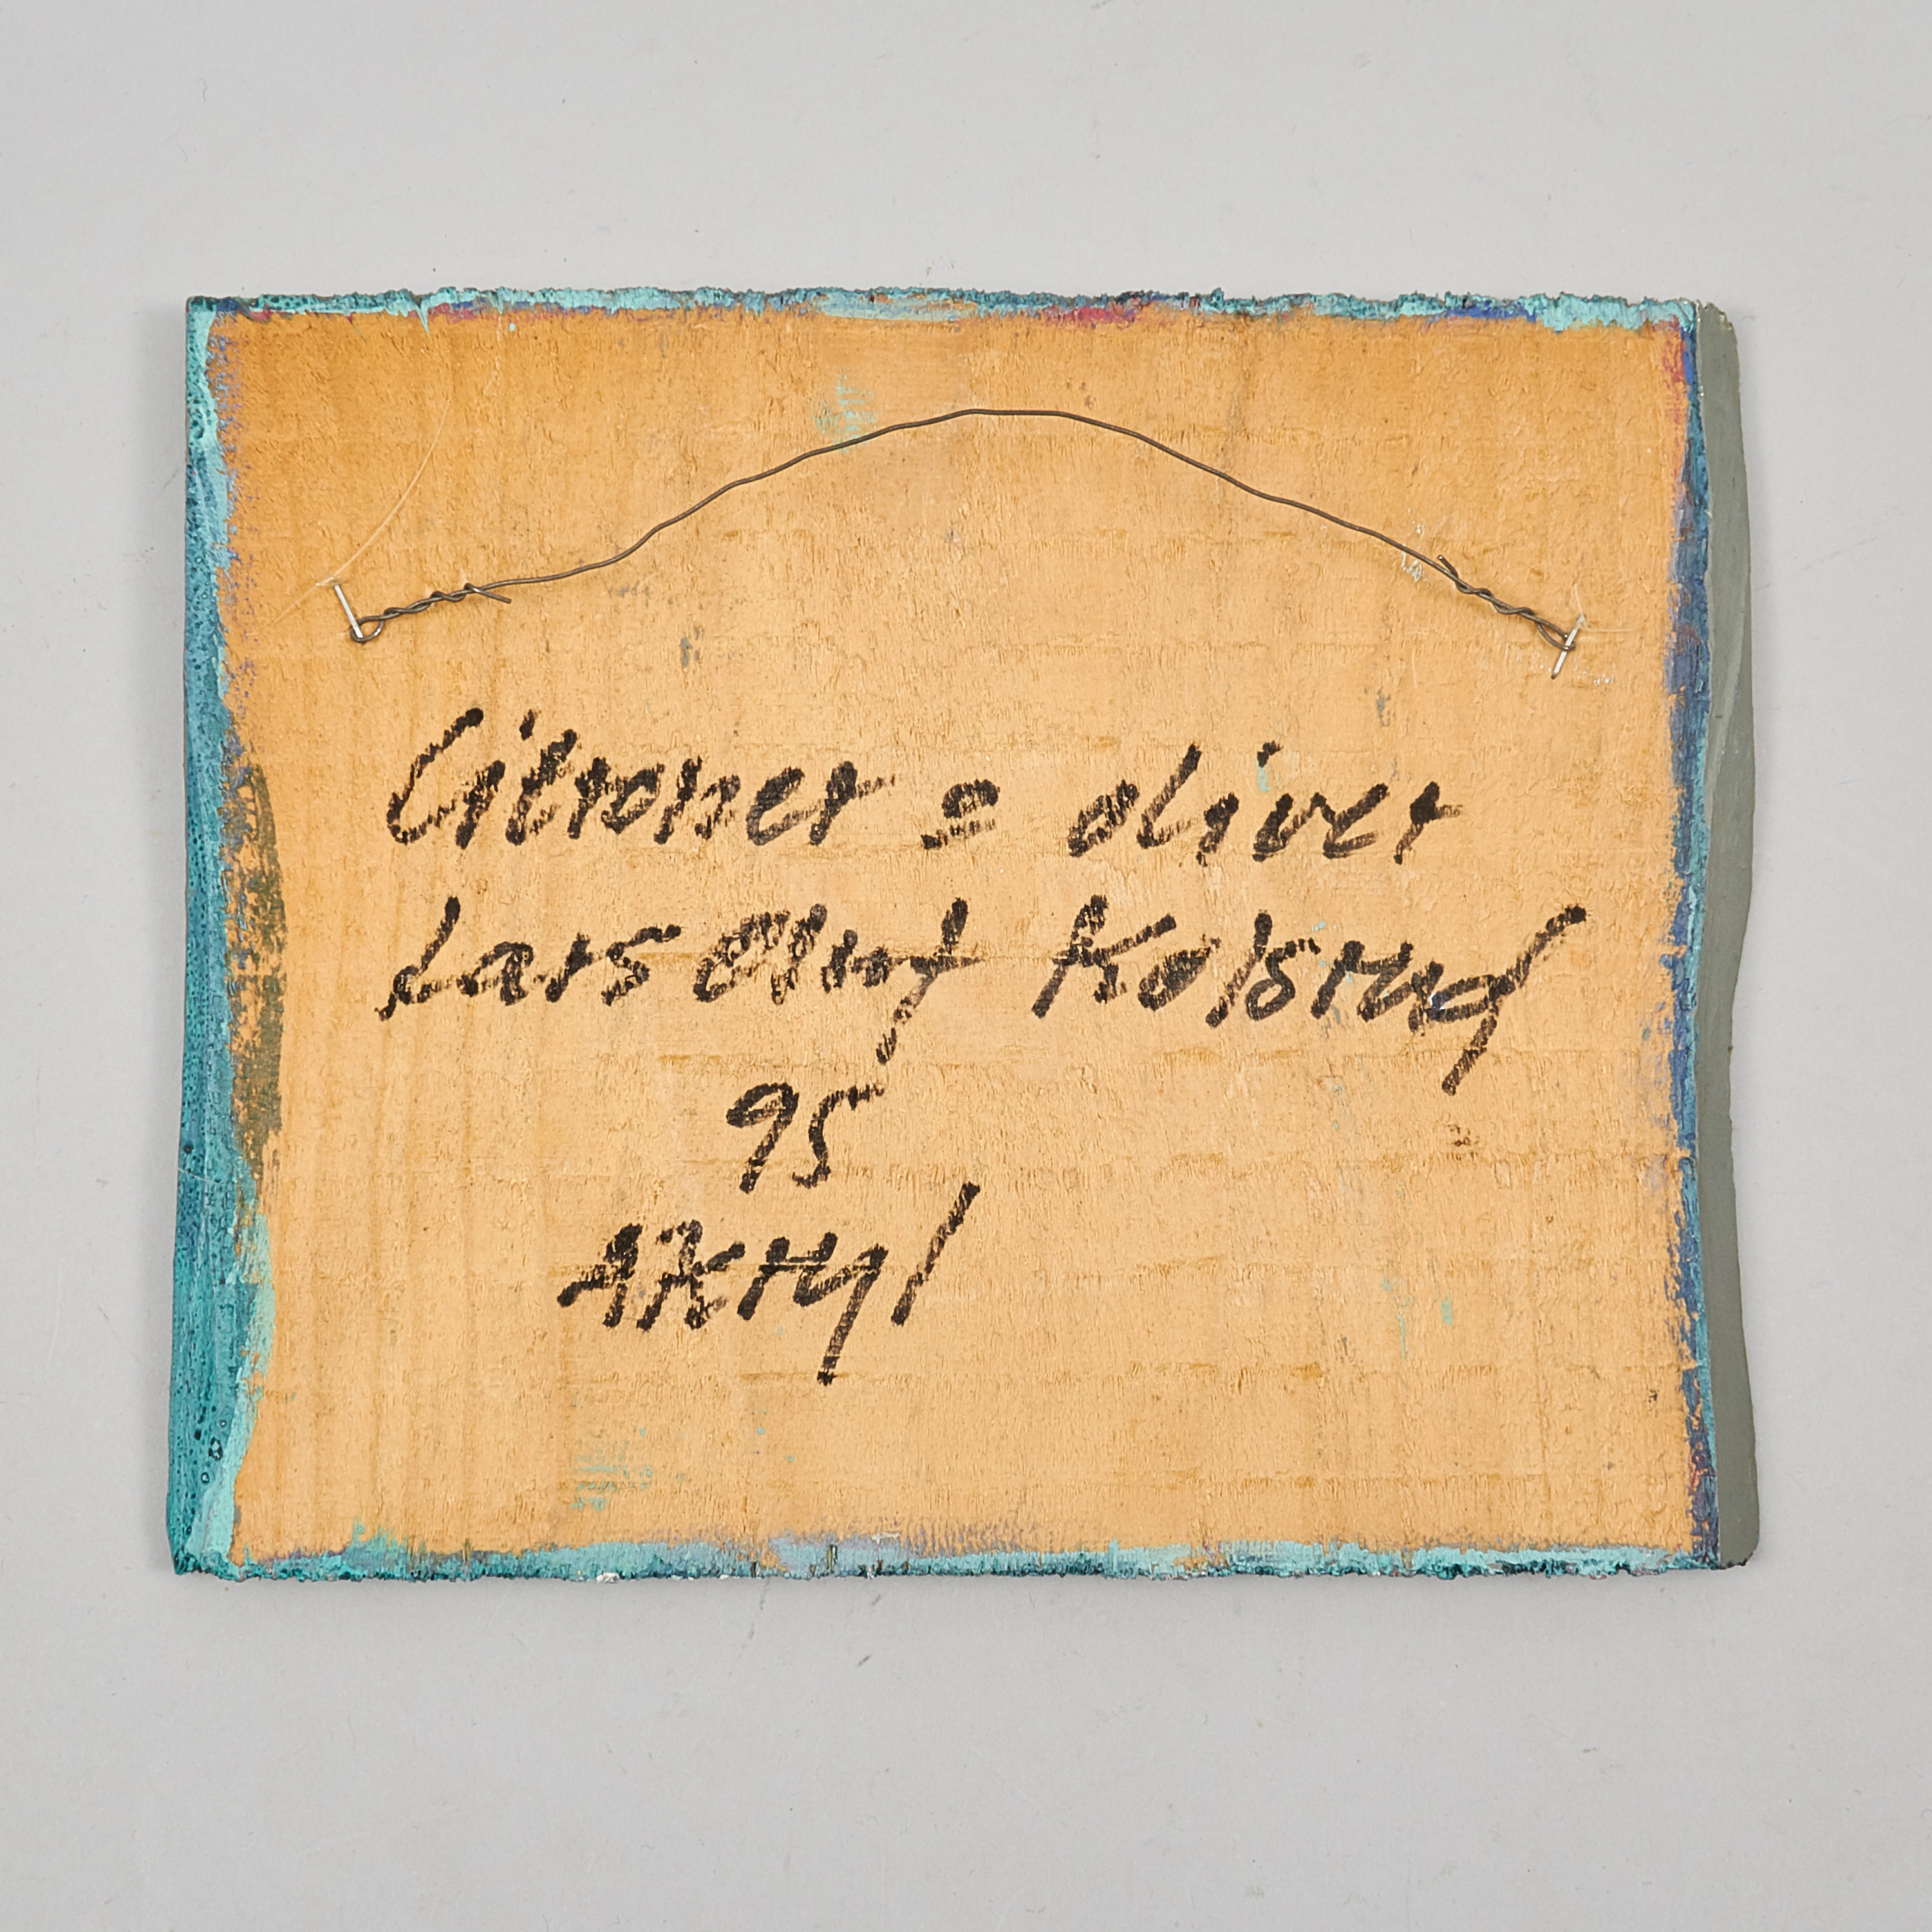 Citroner o oliver
Lars Oluf Kolsrud
95
AKryl